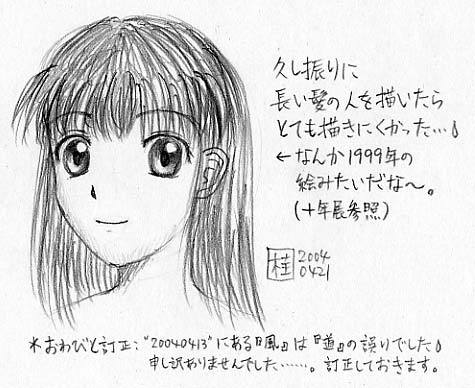 久し振りに
長い髪の人を描いたら
とても描きにくかった…。
←なんか1999年の
絵みたいだな〜。
(十年展参照)
桂 2004
0421
*おわびと訂正："20040413"にある『風』は『道』の誤りでした。
申し訳ありませんでした……。訂正しておきます。